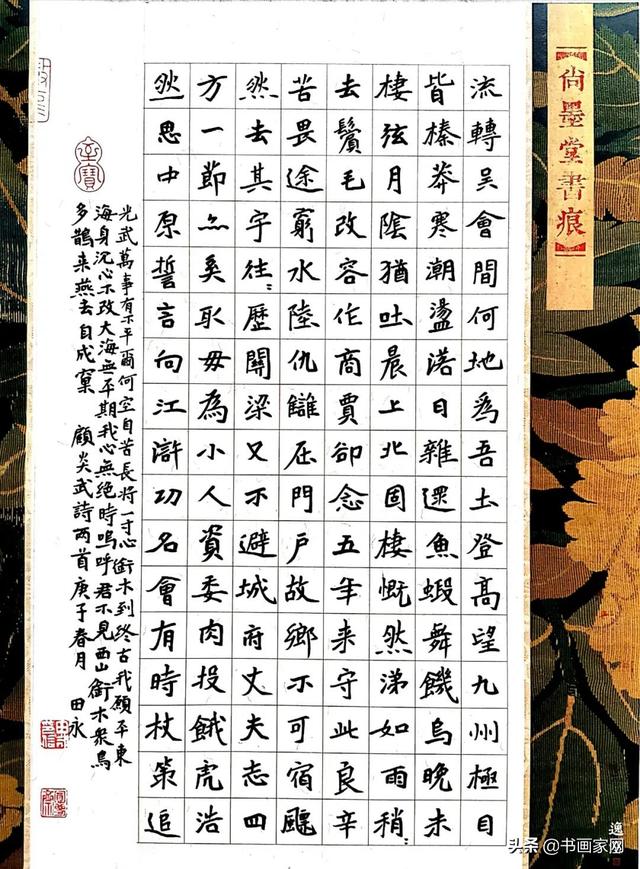 尚墨堂書痕
流轉吳會間何地爲吾土登高望九州極目
皆榛莽寒潮盪落日雜遝魚蝦舞饑烏晚未
棲弦月陰猶吐晨上北固樓慨然涕如雨稍〻
去鬢毛改容作商賈卻念五年来守此良辛
苦畏途窮水陸仇讎在門戶故鄉不可宿飄
然去其宇往〻歷關梁又不避城府丈夫志四
方一節亦奚取毋為小人資委肉投餓虎浩
然思中原誓言向江滸功名會有時杖策追
光武萬事有不平爾何空自苦長將一寸心銜木到終古我願平東
海身沈心不改大海無平期我心無絕時嗚呼君不見西山銜木衆鳥
多鵲来燕去自成窠 顧炎武詩兩首庚子春月 田永
头条@书画家网